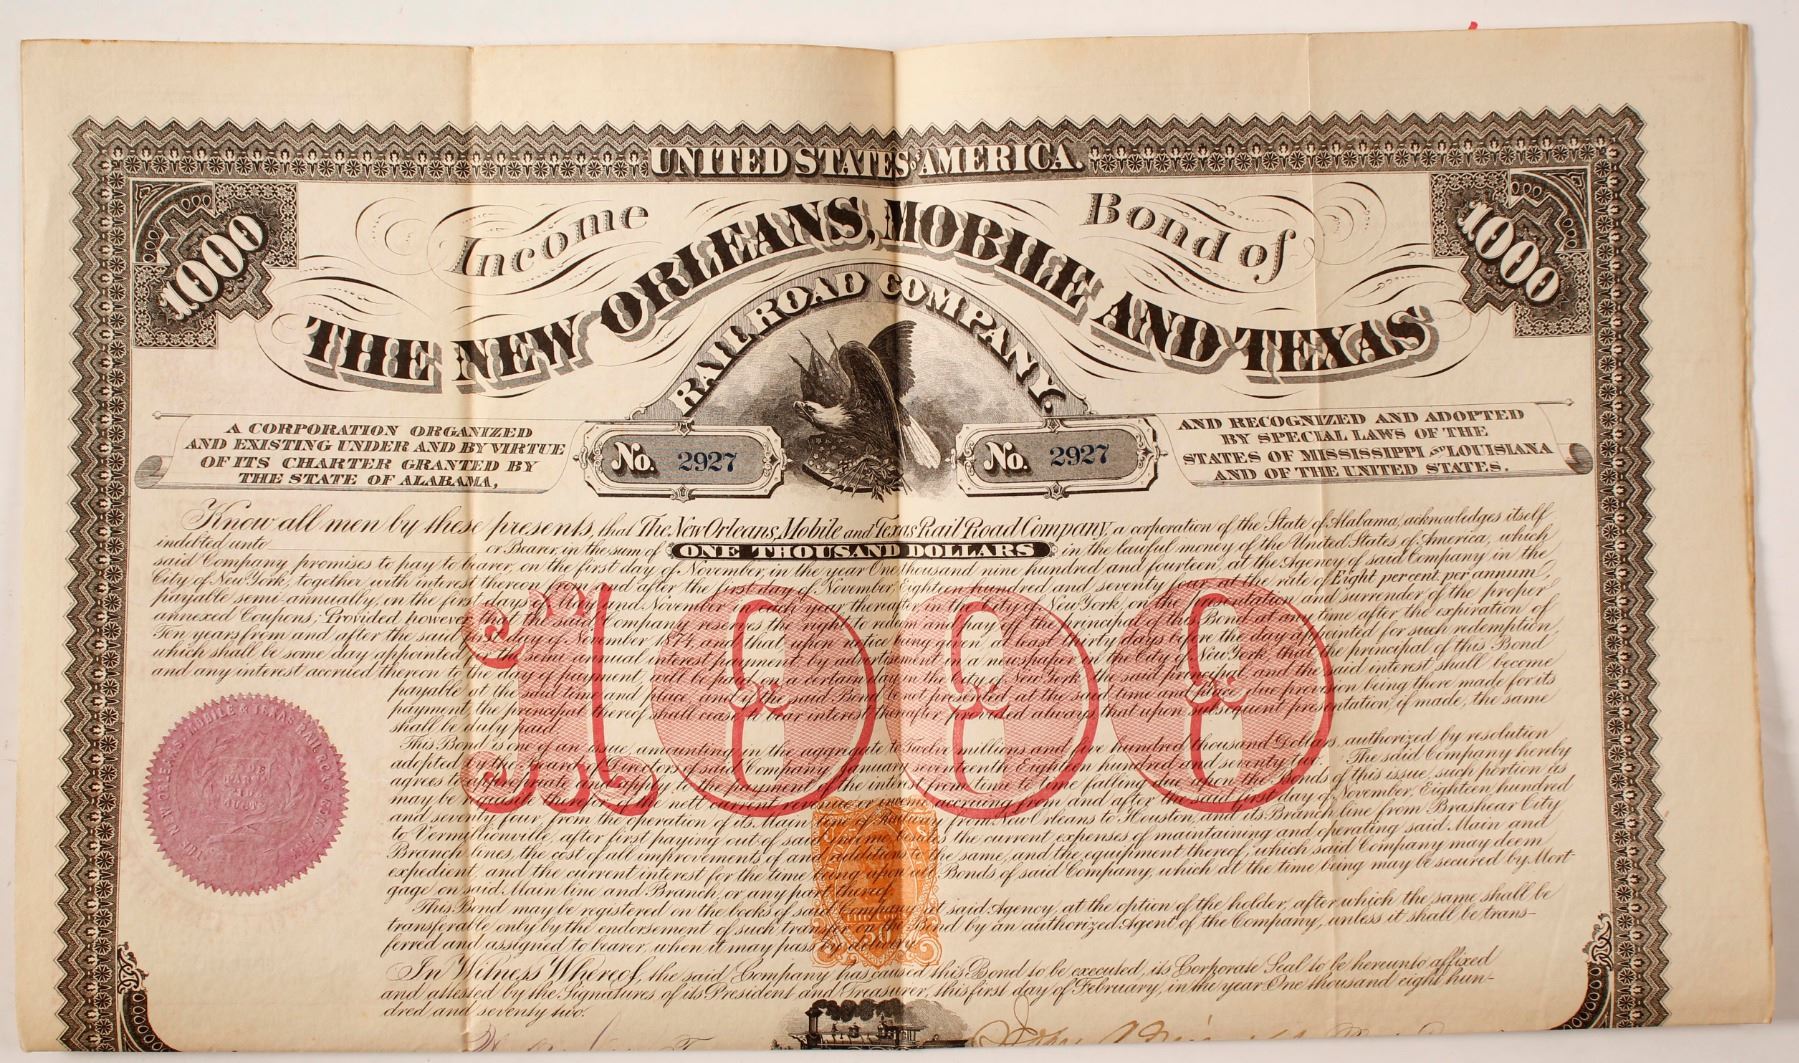 UNITED STATES OF AMERICA.
1000
Income Bond of
1000
THE NEW ORLEANS, MOBILE AND TEXAS
RAILROAD COMPANY.
A CORPORATION ORGANIZED
AND EXISTING UNDER AND BY VIRTUE
OF ITS CHARTER GRANTED BY
THE STATE OF ALABAMA,
No. 2927
No. 2927
AND RECOGNIZED AND ADOPTED
BY SPECIAL LAWS OF THE
STATES OF MISSISSIPPI AND LOUISIANA
AND OF THE UNITED STATES.
Know all men by these presents, that The New Orleans, Mobile and Texas Rail Road Company, a corporation of the State of Alabama, acknowledges itself
indebted unto or Bearer, in the sum of ONE THOUSAND DOLLARS in the lawful money of the United States of America, which
said Company promises to pay to bearer, on the first day of November, in the year One thousand nine hundred and fourteen, at the Agency of said Company in the
City of New York, together with interest thereon from and after the first day of November, Eighteen hundred and seventy four, at the rate of Eight per cent. per annum,
payable semi-annually, on the first days of May and November in each year thereafter, in the City of New York, on the presentation and surrender of the proper
annexed Coupons; Provided however, that the said Company reserves the right to redeem and pay off the principal of this Bond at any time after the expiration of
Ten years from and after the said first day of November 1874, and that upon notice being given at least thirty days before the day appointed for such redemption,
which shall be some day appointed for the semi annual interest payment, by advertisement in a newspaper in the City of New York, that the principal of this Bond
and any interest accrued thereon to the day of payment, will be paid on a certain day in the City of New York, the said principal and the said interest, shall become
payable at the said time and place, and if the said Bond be not presented at the said time and place, due provision being there made for its
payment, the principal thereof shall cease to bear interest thereafter, provided always that upon subsequent presentation, if made, the same
shall be duly paid.
This Bond is one of an issue, amounting in the aggregate to Twelve millions and five hundred thousand Dollars, authorized by resolution
adopted by the Board of Directors of said Company January seventeenth Eighteen hundred and seventy two. The said Company hereby
agrees to appropriate and apply to the payment of the interest from time to time falling due upon the Bonds of this issue, such portion as
may be requisite therefor, of the nett current revenue or income accruing from and after the said first day of November, Eighteen hundred
and seventy four, from the operation of its Main line of Railroad from New Orleans to Houston, and its Branch line from Brashear City
to Vermillionville, after first paying out of said income besides the current expenses of maintaining and operating said Main and
Branch lines, the cost of all improvements of and additions to the same, and the equipment thereof, which said Company may deem
expedient, and the current interest for the time being upon all Bonds of said Company, which at the time being may be secured by Mort-
gage on said Main line and Branch, or any part thereof.
This Bond may be registered on the books of said Company at said Agency, at the option of the holder, after which the same shall be
transferable only by the endorsement of such transfer on the Bond by an authorized Agent of the Company, unless it shall be trans-
ferred and assigned to bearer, when it may pass by delivery.
In Witness Whereof, the said Company has caused this Bond to be executed, its Corporate Seal to be hereunto affixed
and attested by the Signatures of its President and Treasurer, this first day of February, in the year One thousand eight hun-
dred and seventy two.
1000
NEW ORLEANS MOBILE & TEXAS RAILROAD